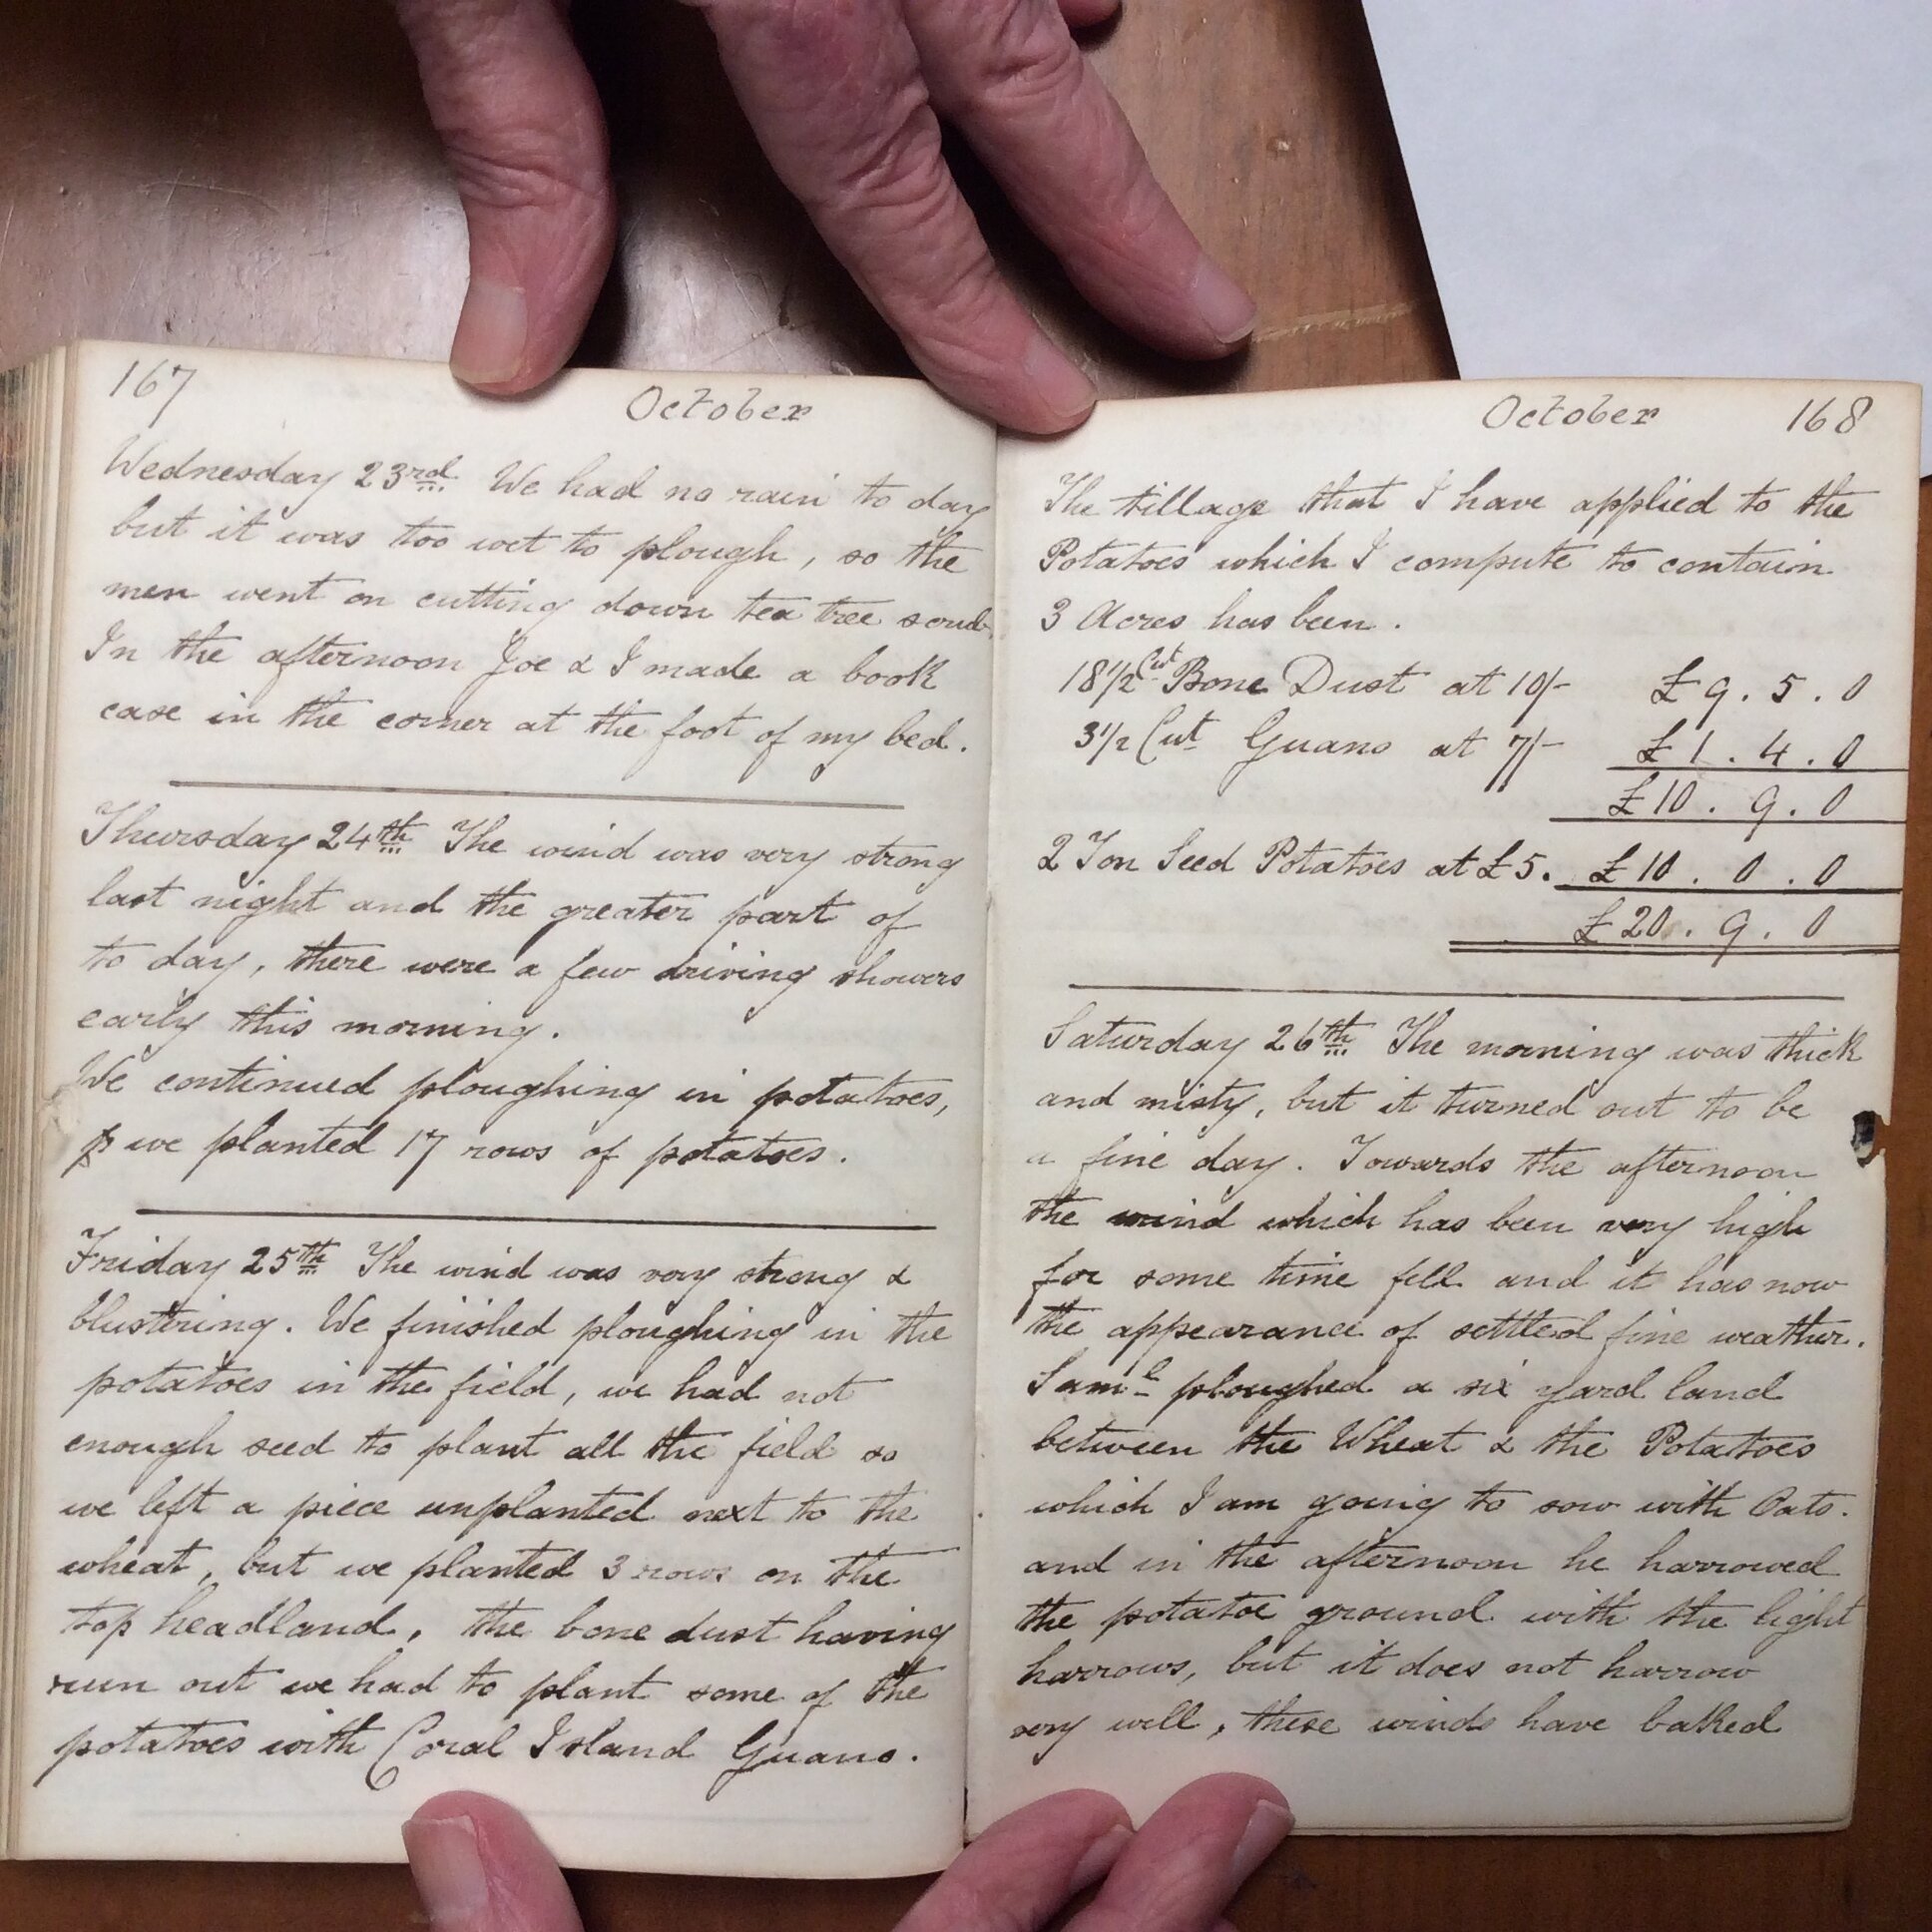 167
October
Wednesday 23rd. We had no rain to day
but it was too wet to plough, so the
men went on cutting down tea tree scrub
In the afternoon Joe & I made a book
case in the corner at the foot of my bed.
Thursday 24th The wind was very strong
last night and the greater part of
to day, there were a few driving showers
early this morning.
We continued ploughing in potatoes,
we planted 17 rows of potatoes.
Friday 25th The wind was very strong &
blustering. We finished ploughing in the
potatoes in the field, we had not
enough seed to plant all the field so
we left a piece unplanted next to the
wheat, but we planted 3 rows on the
top headland, the bone dust having
run out we had to plant some of the
potatoes with Coral Island Guano.
October 168
The tillage that I have applied to the
Potatoes which I compute to contain
3 Acres has been.
18 1/2 Cwt Bone Dust at 10/- £ 9 . 5 . 0
3 1/2 Cwt Guano at 7/- £ 1 . 4 . 0
£ 10 . 9 . 0
2 Ton Seed Potatoes at £5. £ 10 . 0 . 0
£ 20 . 9 . 0
Saturday 26th The morning was thick
and misty, but it turned out to be
a fine day. Towards the afternoon
the wind which has been very high
for some time fell and it has now
the appearance of settled fine weather.
Saml ploughed a six yard land
between the Wheat & the Potatoes
which I am going to sow with Oats.
and in the afternoon he harrowed
the potatoe ground with the light
harrows, but it does not harrow
very well, these winds have baked